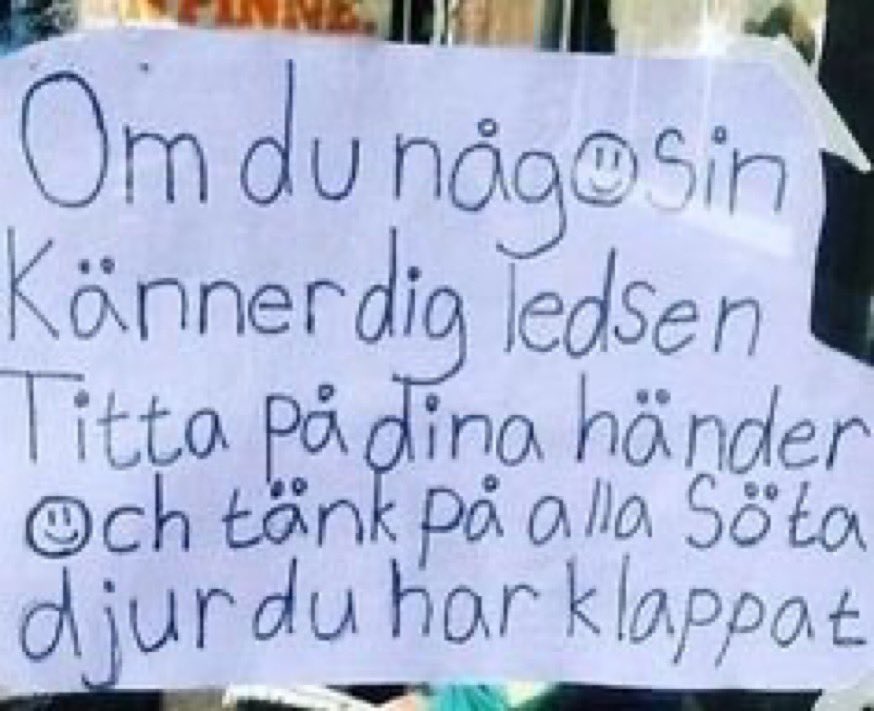 PINNE.
Om du någosin
Känner dig ledsen
Titta på dina händer
och tänk på alla Söta
djur du har klappat